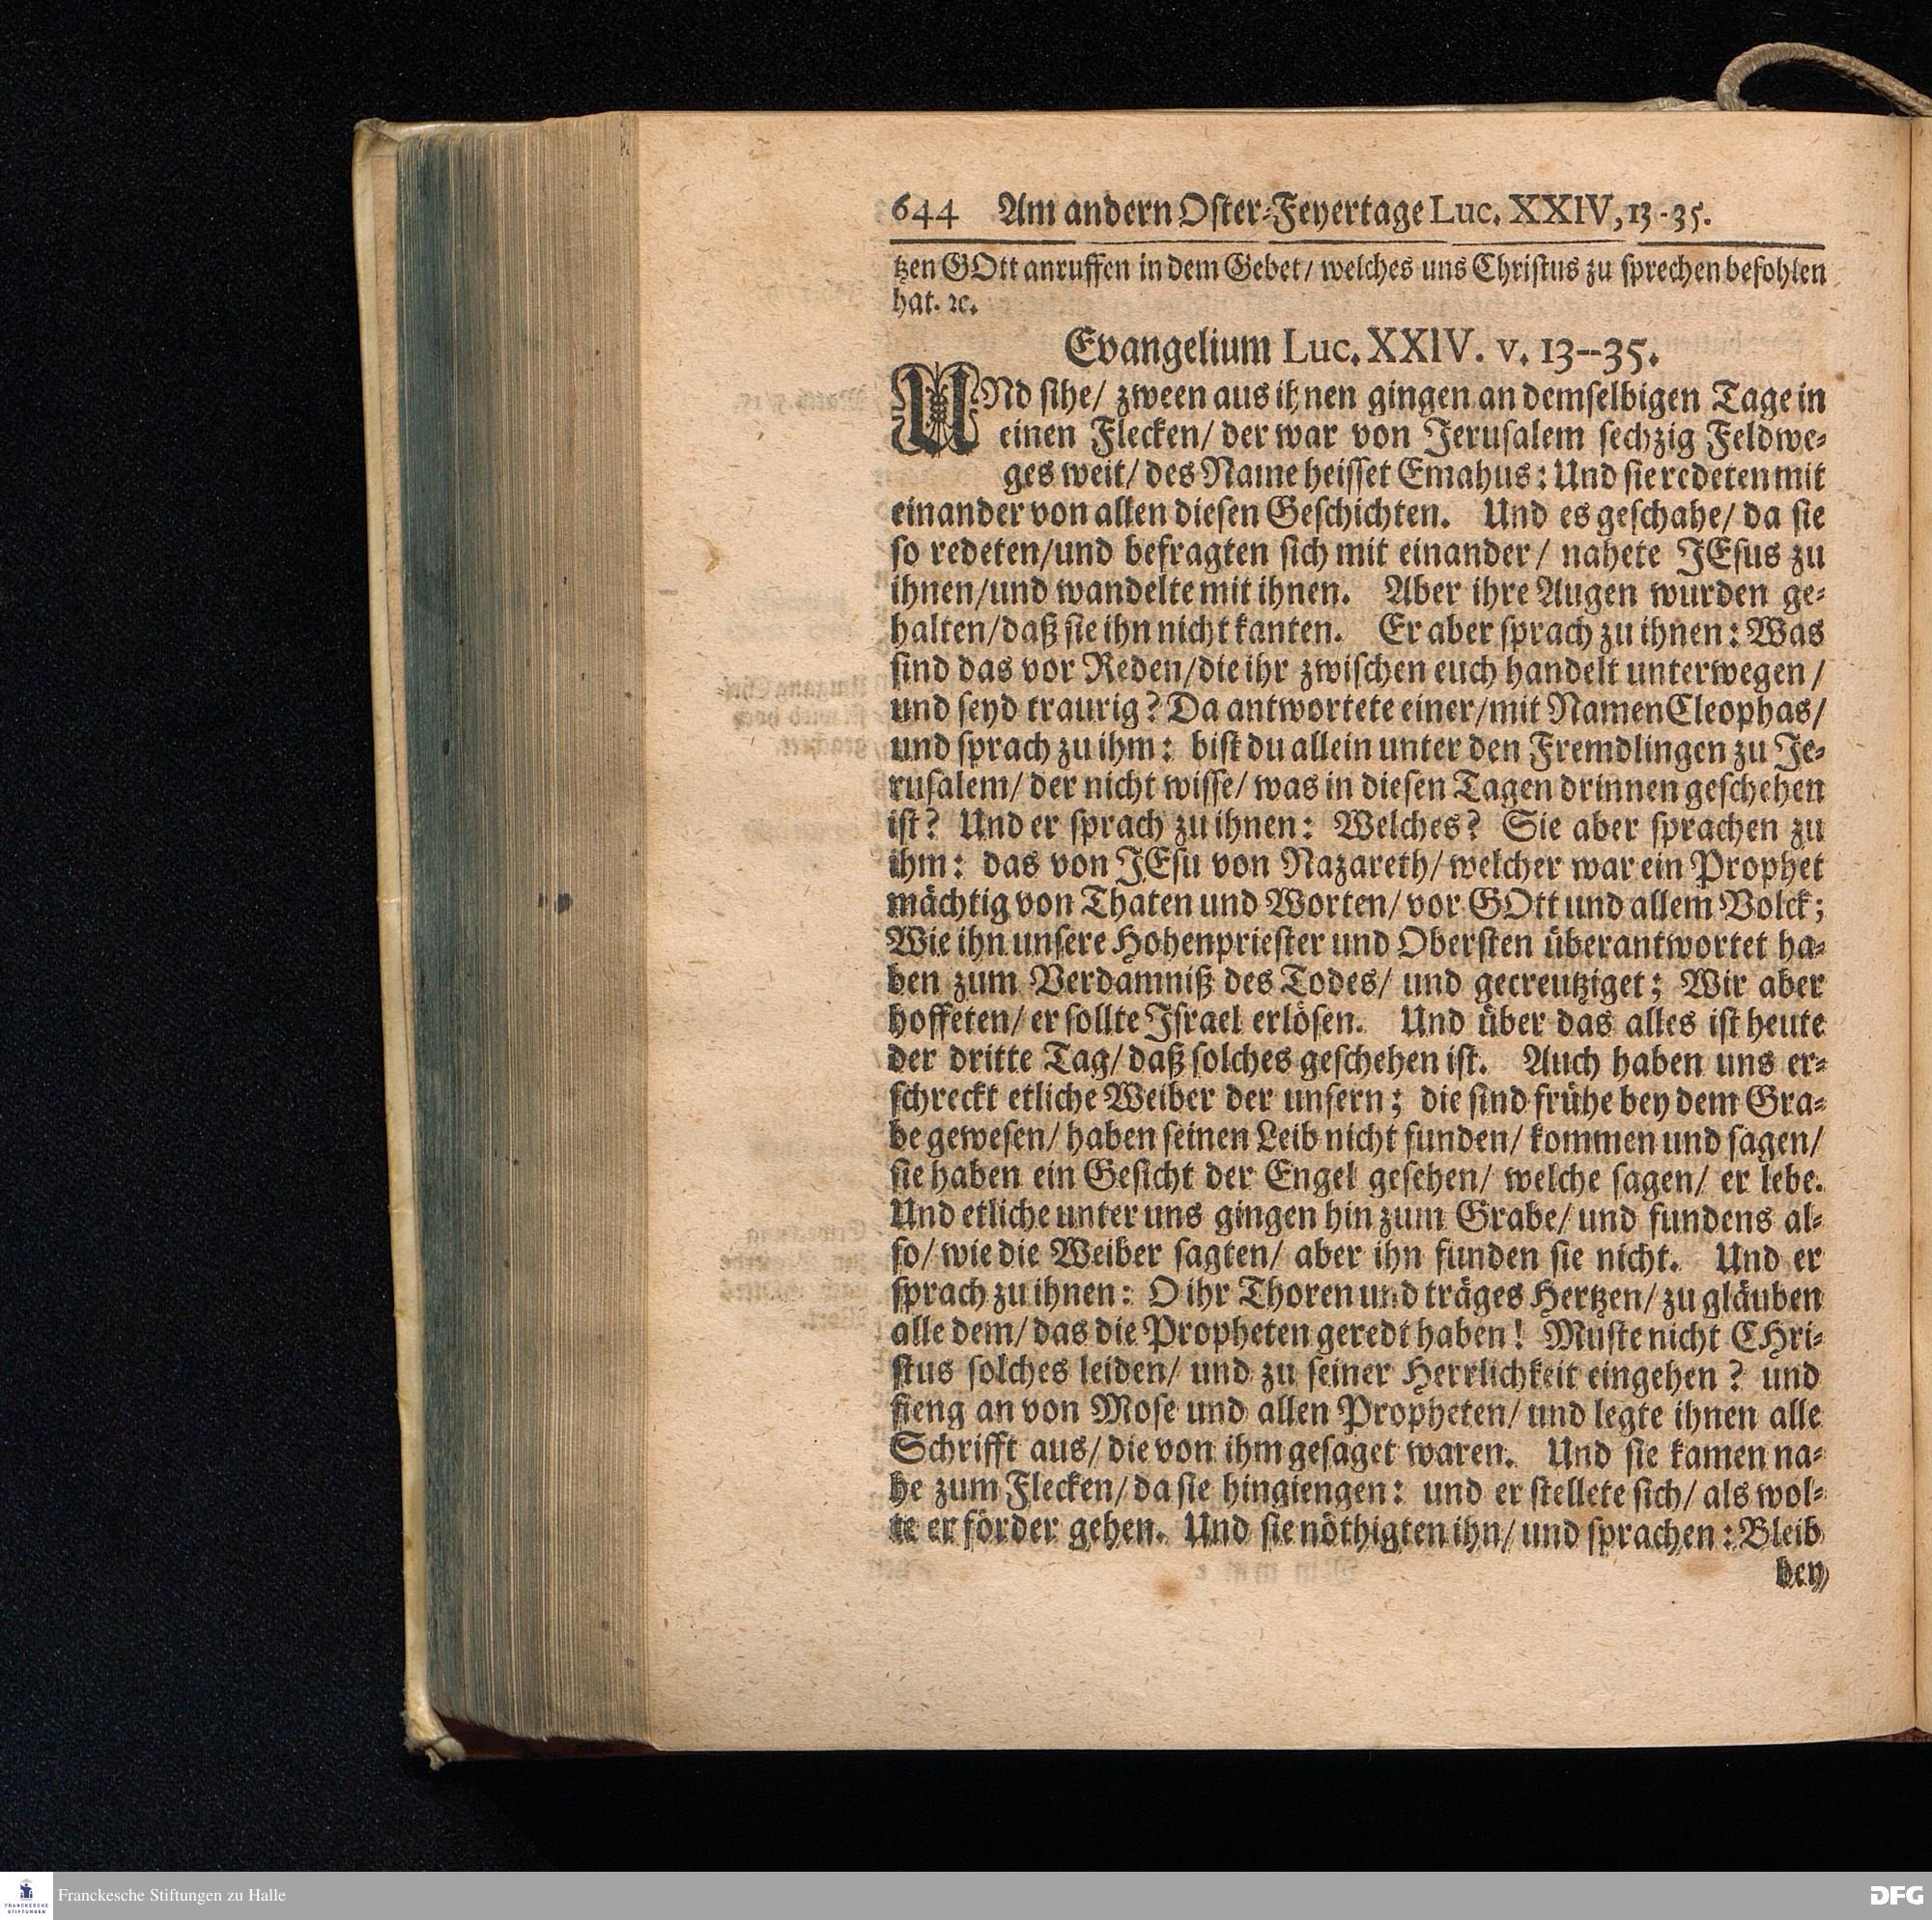 644 Am andern Oster-Feyertage Luc. XXIV, 13-35.
tzen GOtt anruffen in dem Gebet/ welches uns Christus zu sprechen befohlen
hat. ꝛc.
Evangelium Luc. XXIV. v. 13--35.
UNd sihe/ zween aus ihnen gingen an demselbigen Tage in
einen Flecken/ der war von Jerusalem sechzig Feldwe-
ges weit/ des Name heisset Emahus: Und sie redeten mit
einander von allen diesen Geschichten. Und es geschahe/ da sie
so redeten/und befragten sich mit einander/ nahete JEsus zu
ihnen/und wandelte mit ihnen. Aber ihre Augen wurden ge-
halten/daß sie ihn nicht kanten. Er aber sprach zu ihnen: Was
sind das vor Reden/die ihr zwischen euch handelt unterwegen/
und seyd traurig? Da antwortete einer/mit Namen Cleophas/
und sprach zu ihm: bist du allein unter den Fremdlingen zu Je-
rusalem/ der nicht wisse/ was in diesen Tagen drinnen geschehen
ist? Und er sprach zu ihnen: Welches? Sie aber sprachen zu
ihm: das von JEsu von Nazareth/ welcher war ein Prophet
mächtig von Thaten und Worten/ vor GOtt und allem Volck;
Wie ihn unsere Hohenpriester und Obersten überantwortet ha-
ben zum Verdamniß des Todes/ und gecreutziget; Wir aber
hoffeten/ er sollte Israel erlösen. Und über das alles ist heute
der dritte Tag/ daß solches geschehen ist. Auch haben uns er-
schreckt etliche Weiber der unsern; die sind frühe bey dem Gra-
be gewesen/ haben seinen Leib nicht funden/ kommen und sagen/
sie haben ein Gesicht der Engel gesehen/ welche sagen/ er lebe.
Und etliche unter uns gingen hin zum Grabe/ und fundens al-
so/ wie die Weiber sagten/ aber ihn funden sie nicht. Und er
sprach zu ihnen: O ihr Thoren und träges Hertzen/ zu gläuben
alle dem/ das die Propheten geredt haben! Muste nicht CHri-
stus solches leiden/ und zu seiner Herrlichkeit eingehen? und
fieng an von Mose und allen Propheten/ und legte ihnen alle
Schrifft aus/ die von ihm gesaget waren. Und sie kamen na-
he zum Flecken/ da sie hingiengen: und er stellete sich/ als wol-
te er förder gehen. Und sie nöthigten ihn/ und sprachen: Bleib
bey
Franckesche Stiftungen zu Halle
FRANCKESCHE
STIFTUNGEN
DFG